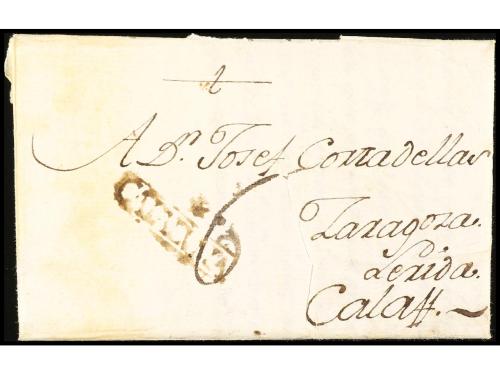 A Dn. Josef Cortadellas
Zaragoza.
Lerida.
Calaff.